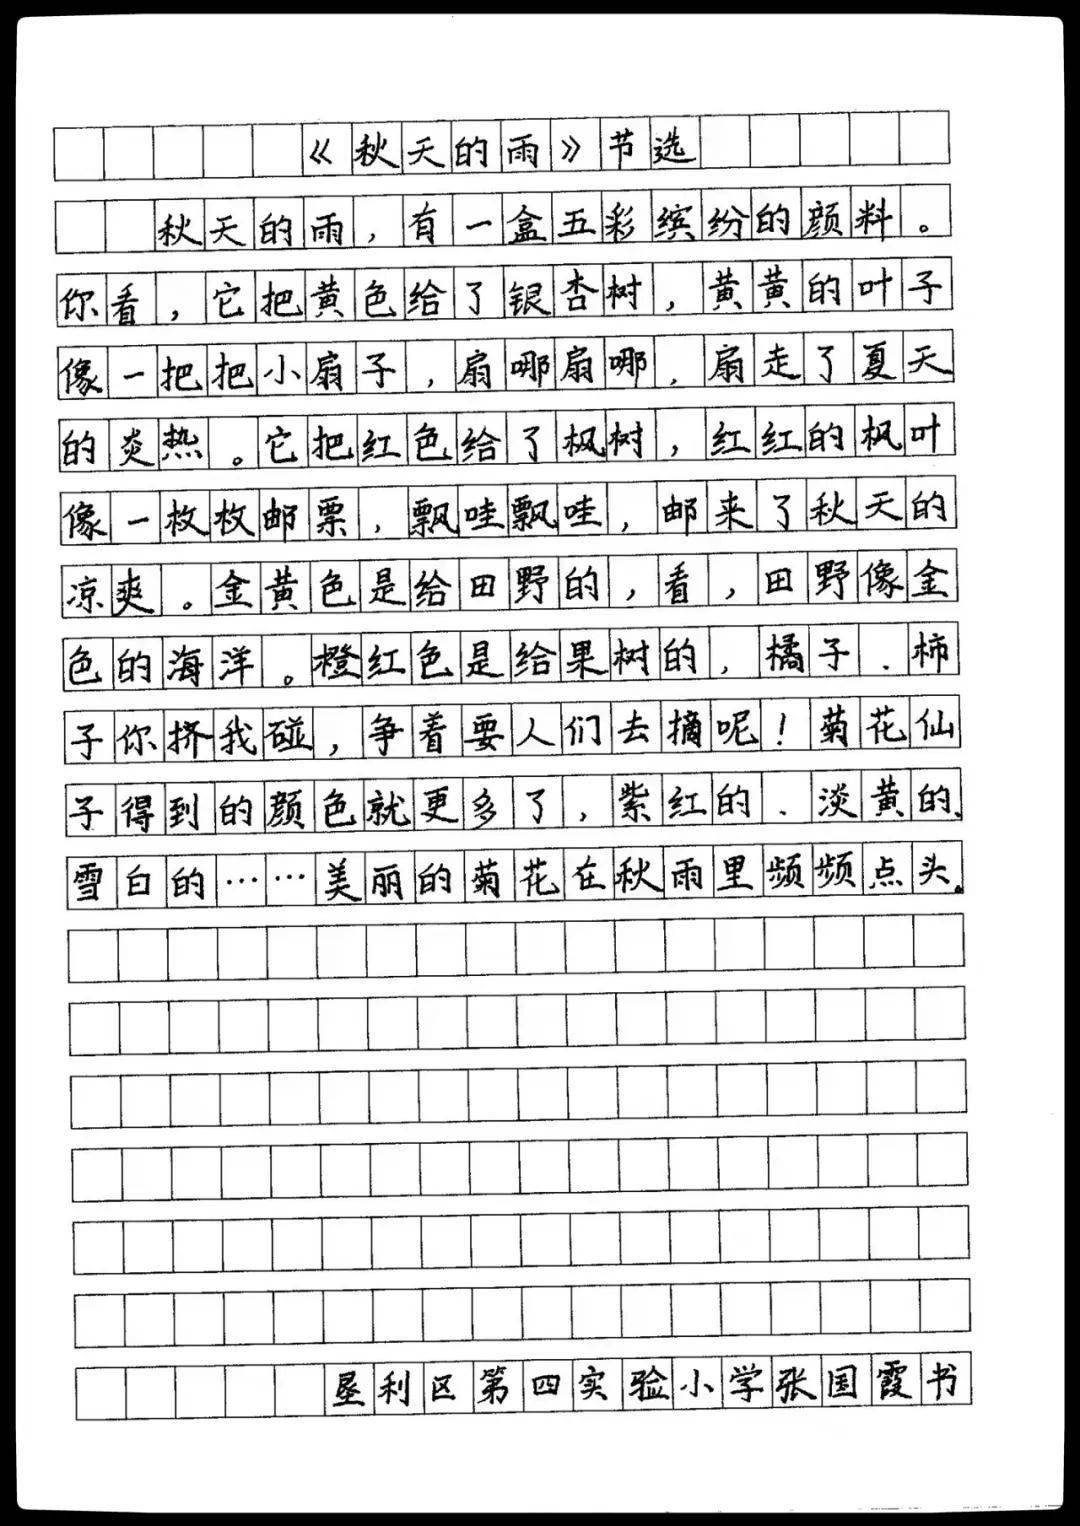 《秋天的雨》节选
秋天的雨，有一盒五彩缤纷的颜料。
你看，它把黄色给了银杏树，黄黄的叶子
像一把把小扇子，扇哪扇哪，扇走了夏天
的炎热。它把红色给了枫树，红红的枫叶
像一枚枚邮票，飘哇飘哇，邮来了秋天的
凉爽。金黄色是给田野的，看，田野像金
色的海洋。橙红色是给果树的，橘子、柿
子你挤我碰，争着要人们去摘呢！菊花仙
子得到的颜色就更多了，紫红的、淡黄的、
雪白的……美丽的菊花在秋雨里频频点头。
垦利区第四实验小学张国霞书